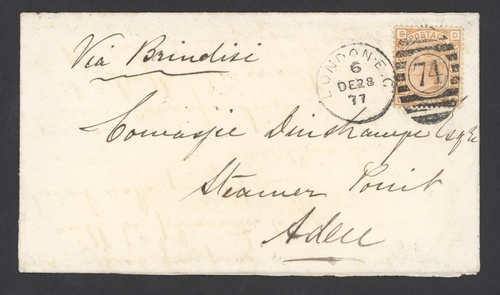 Via Brindisi
LONDON·E.C
6
DE28
77
G POSTAGE D
74
Cowasjee Dinshawje Esqre
Steamer Point
Aden